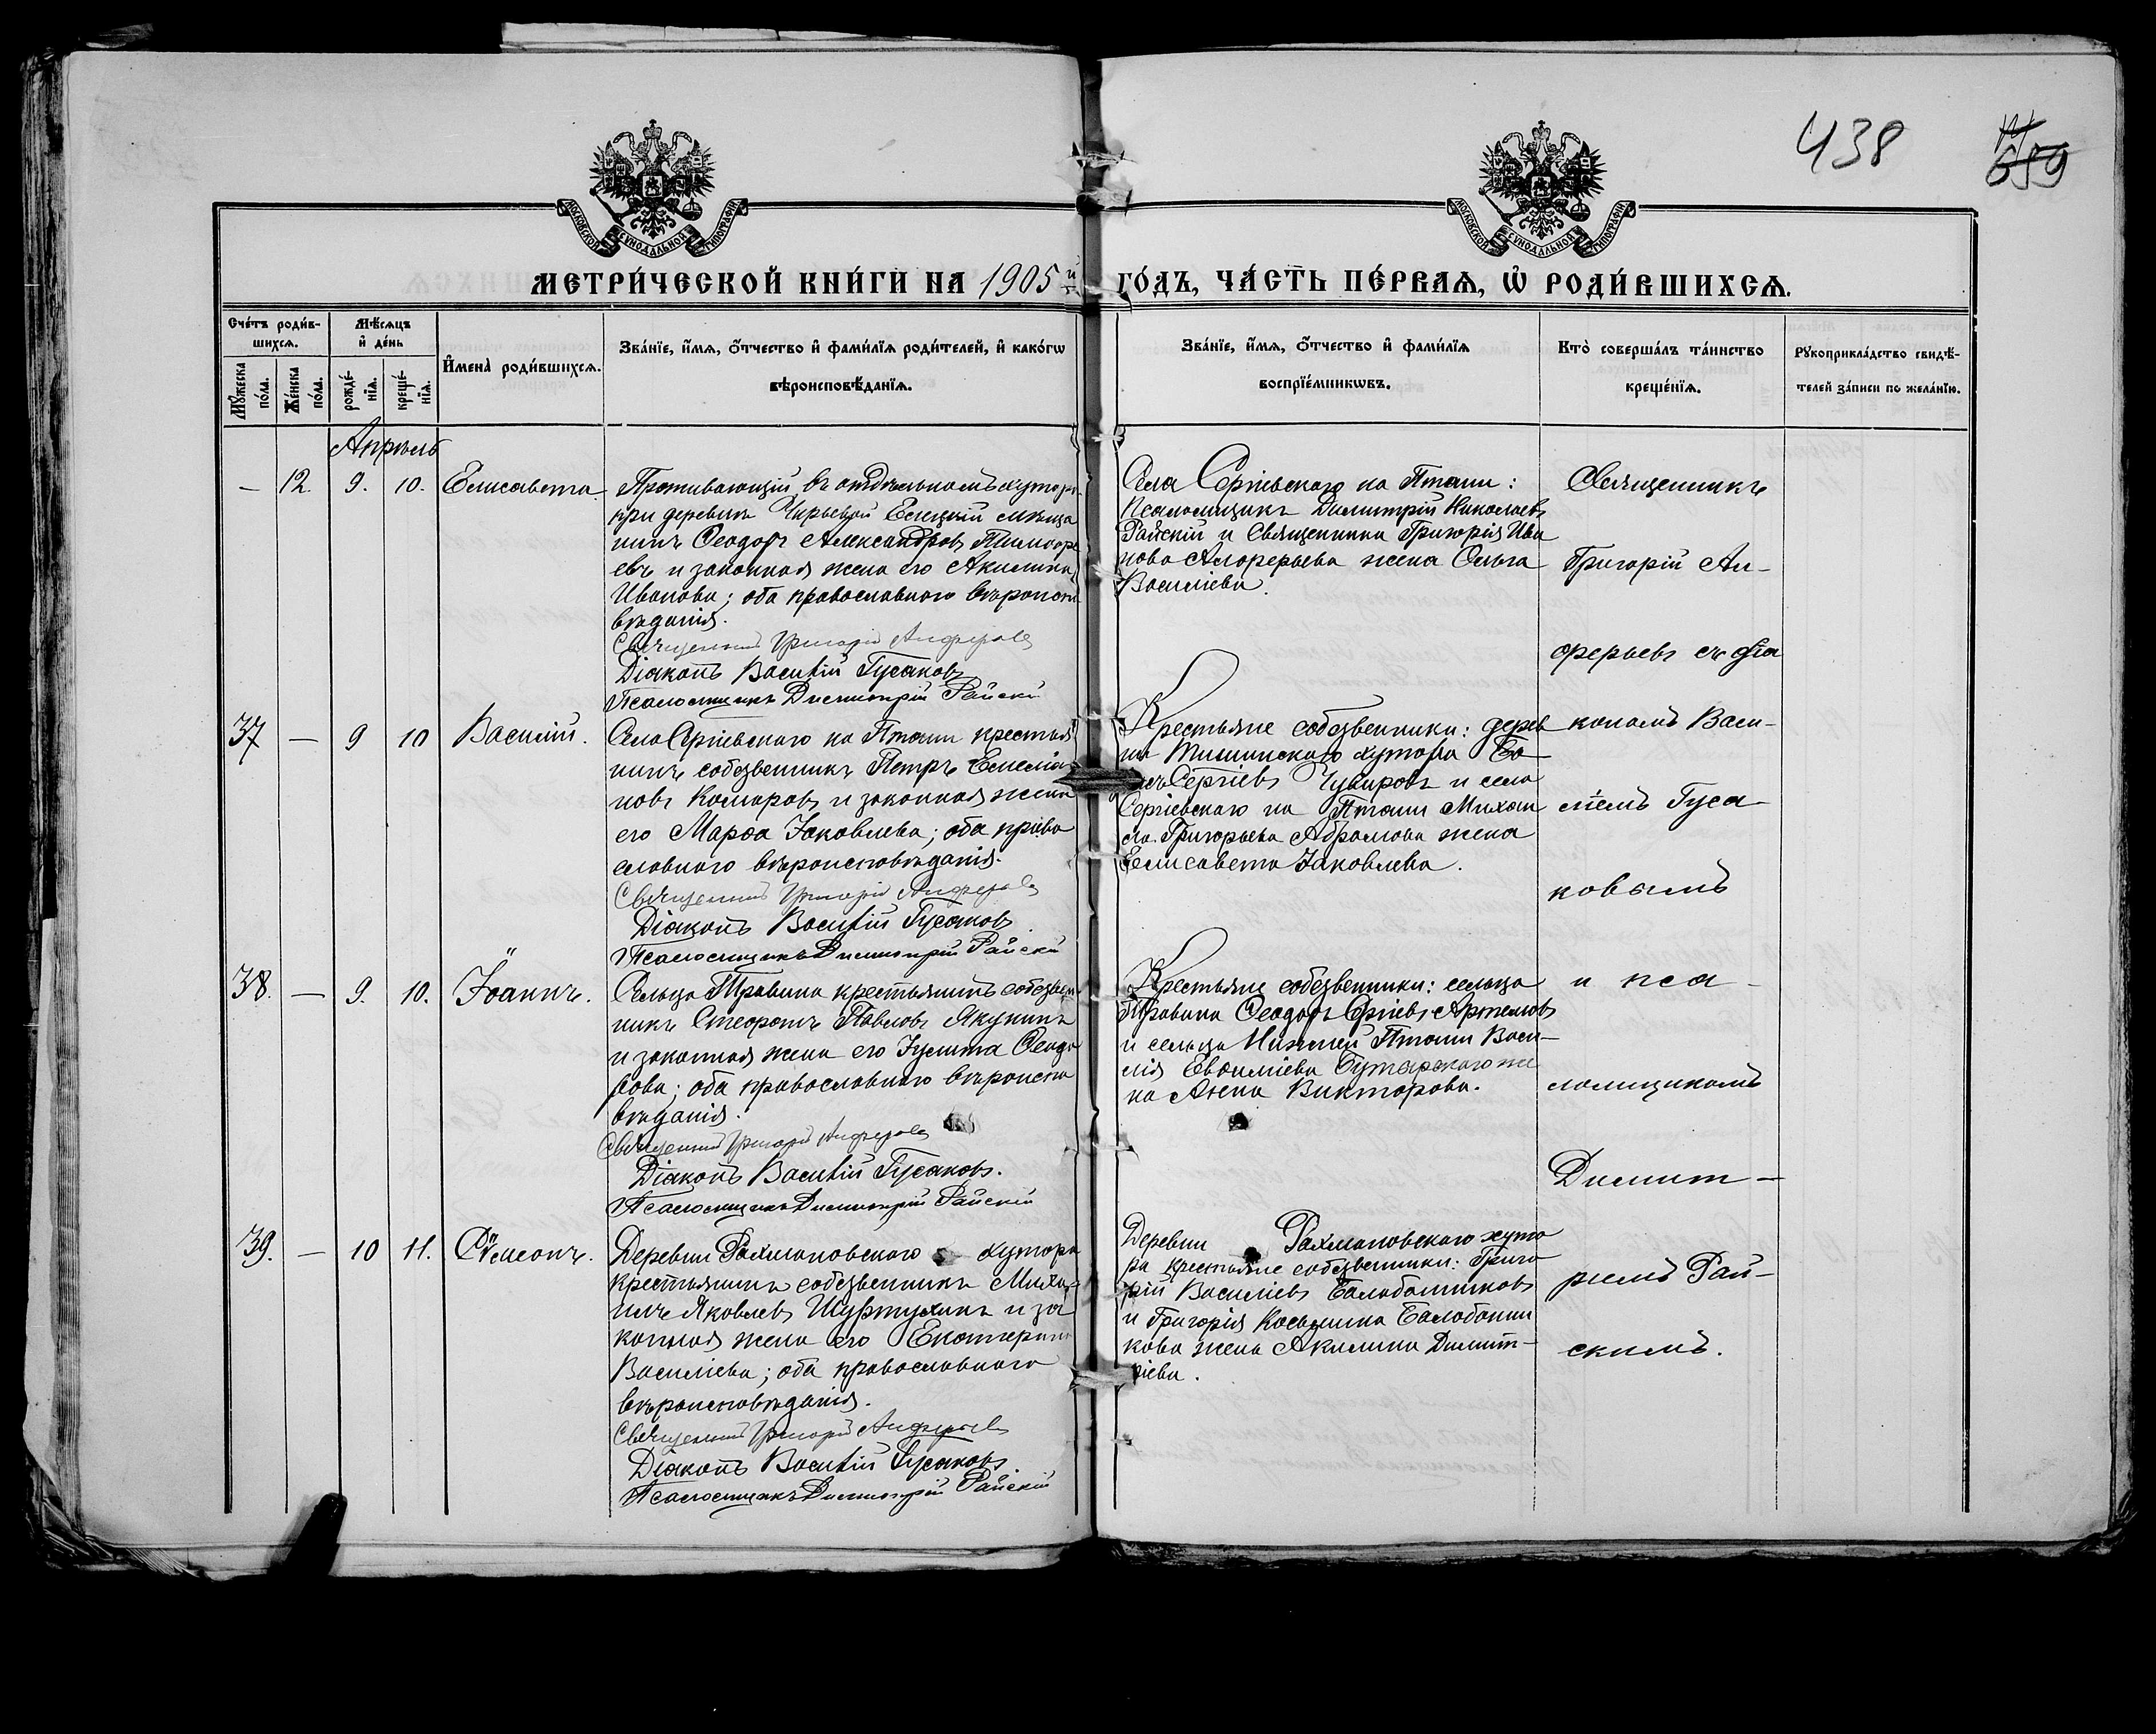 438
659
МОСКОВСКОЙ СѴНОДАЛЬНОЙ ТИПОГРАФІИ
МОСКОВСКОЙ СѴНОДАЛЬНОЙ ТИПОГРАФІИ
МЕТРИ́ЧЕСКОЙ КНИ́ГИ НА 1905й ГО́ДЪ, ЧА́СТЬ ПЕ́РВАѦ, Ѡ҆ РОДИ́ВШИХСѦ.
Сче́тъ роди́в-
шихсѧ.
Мѣ́сѧцъ
и҆ де́нь
Мꙋ́жеска по́ла.
Же́нска по́ла.
рожде́-
нїѧ.
креще́-
нїѧ.
И҆мена̀ роди́вшихсѧ.
Зва́нїе, и҆́мѧ, ѻ҆́тчество и҆ фами́лїѧ роди́телей, и҆ како́гѡ
вѣроисповѣ́данїѧ.
Зва́нїе, и҆́мѧ, ѻ҆́тчество и҆ фами́лїѧ
воспрїе́мникѡвъ.
Кто̀ соверша́лъ та́инство
креще́нїѧ.
Рꙋкоприкла́дство свидѣ́-
телей за́писи по жела́нїю.
Апрѣль
— 12. 9. 10. Елисавета
Проживающій въ отдѣльномъ хуторѣ
при деревнѣ Елецкій мѣща
нинъ Ѳеодоръ Александровъ Тимоѳе
евъ и законная жена его Акилина
Иванова; оба православнаго вѣроиспо
вѣданія.
Священникъ Григорій Алферьевъ
Діаконъ Василій Гусаковъ
Псаломщикъ Димитрій Райскій
Села Сергіевскаго на Птани:
Псаломщикъ Димитрій Николаевъ
Райскій и Священника Григорія Ива
нова Алферьева жена Ольга
Василіева.
Священникъ
Григорій Ал-
ферьевъ съ діа
кономъ Васи-
ліемъ Гуса-
ковымъ
и пса-
ломщикомъ
Димит-
ріемъ Рай-
скимъ.
37 — 9 10 Василій.
Села Сергіевскаго на Птани крестья
нинъ собственникъ Петръ Емеліа
новъ Комаровъ и законная жена
его Марѳа Іаковлева; оба право
славнаго вѣроисповѣданія.
Священникъ Григорій Алферьевъ
Діаконъ Василій Гусаковъ
Псаломщикъ Димитрій Райскій
Крестьяне собственники: дерев
ни Тишинскаго хутора
Сергіевъ и села
Сергіевскаго на Птани Михаи
ла Григорьева Абрамова жена
Елисавета Іаковлева.
38. — 9. 10. Іоаннъ.
Сельца Травина крестьянинъ собствен
никъ Стефанъ Павловъ Якунинъ
и законная жена его Іулита Ѳеодо
рова; оба православнаго вѣроиспо
вѣданія.
Священникъ Григорій Алферьевъ
Діаконъ Василій Гусаковъ.
Псаломщикъ Димитрій Райскій
Крестьяне собственники: сельца
Травина Ѳеодоръ Сергіевъ Артемовъ
и сельца Нижней Птани Васи-
лія Евѳиміева же
на Анна Викторова.
39. — 10 11. Сѵмеонъ.
Деревни Рахмановскаго хутора
крестьянинъ собственникъ Миха-
илъ Яковлевъ и за
конная жена его Екатерина
Василіева; оба православнаго
вѣроисповѣданія.
Священникъ Григорій Алферьевъ
Діаконъ Василій Гусаковъ
Псаломщикъ Димитрій Райскій
Деревни Рахмановскаго хуто
ра крестьяне собственники: Григо
рій Василіевъ Балабанниковъ
и Григорія Космина Балабанни
кова жена Акилина Димит-
ріева.